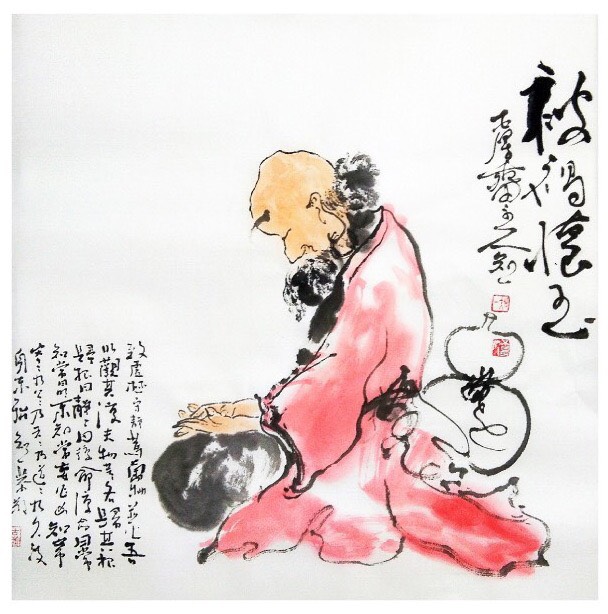 被褐懷玉
致虛極守靜篤萬物並作吾
以觀其復夫物芸芸各歸其根
歸根曰靜靜曰復命復命曰常
知常曰明不知常妄作凶知常
容〻乃公〻乃天〻乃道〻乃久沒
身不殆